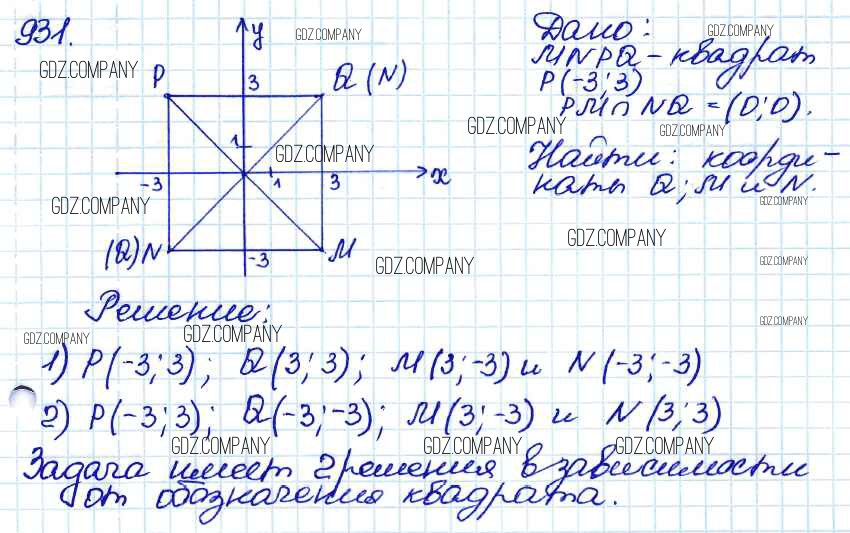 931.
GDZ.COMPANY
GDZ.COMPANY
y
P
3
Q (N)
1
GDZ.COMPANY
-3
1
3
x
GDZ.COMPANY
(Q) N
-3
M
GDZ.COMPANY
Дано:
GDZ.COMPANY
MNPQ - квадрат
P(-3; 3)
PM ∩ NQ = (0; 0).
GDZ.COMPANY
GDZ.COMPANY
Найти: коорди-
наты Q; M и N.
GDZ.COMPANY
GDZ.COMPANY
GDZ.COMPANY
GDZ.COMPANY
Решение:
GDZ.COMPANY
GDZ.COMPANY
1) P(-3; 3); Q(3; 3); M(3; -3) и N(-3; -3)
2) P(-3; 3); Q(-3; -3); M(3; -3) и N(3; 3)
GDZ.COMPANY
GDZ.COMPANY
GDZ.COMPANY
Задача имеет 2 решения в зависимости
от обозначения квадрата.